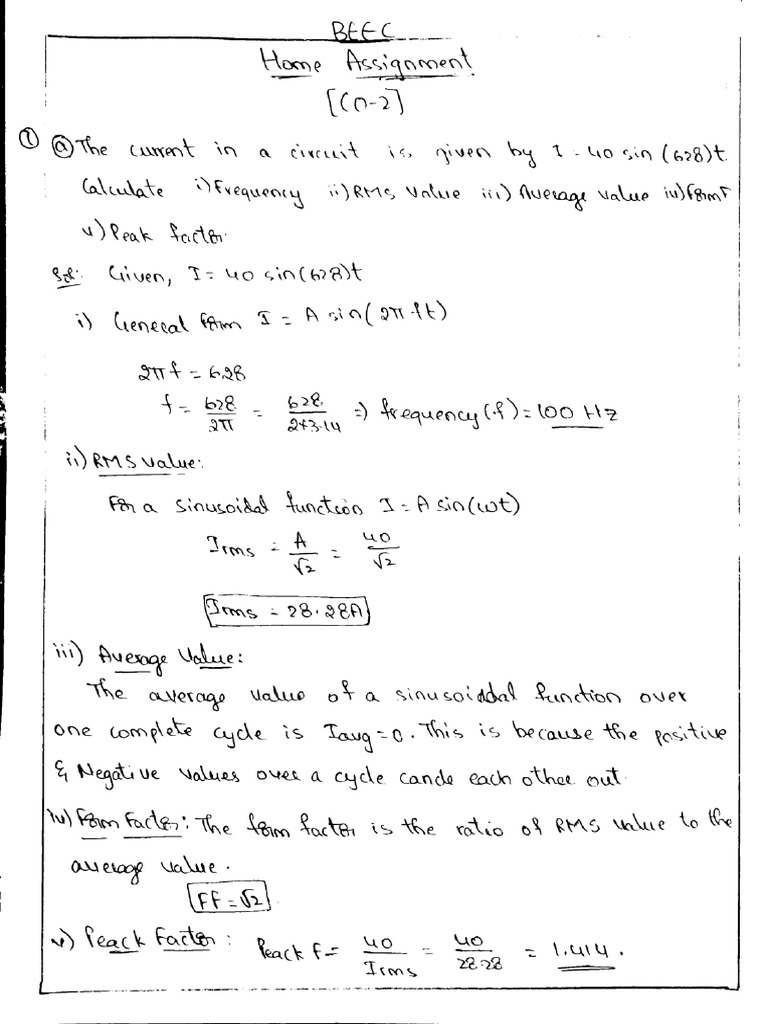 BEEC
Home Assignment
[CO-2]
① ⓐ The current in a circuit is given by I = 40 sin (628)t.
Calculate i) Frequency ii) RMS Value iii) Average value iv) Form F
v) Peak factor.
Sol: Given, I = 40 sin(628)t
i) General form I = A sin(2π ft)
2πf = 628
f = 628/2π = 628/2*3.14 => frequency(f) = 100 Hz
ii) RMS value:
For a sinusoidal function I = A sin(ωt)
Irms = A/√2 = 40/√2
Irms = 28.28A
iii) Average Value:
The average value of a sinusoidal function over
one complete cycle is Iavg = 0. This is because the positive
& Negative values over a cycle cancle each other out.
iv) Form Factor: The form factor is the ratio of RMS value to the
average value.
FF = √2
v) Peack Factor: Peack f = 40/Irms = 40/28.28 = 1.414.